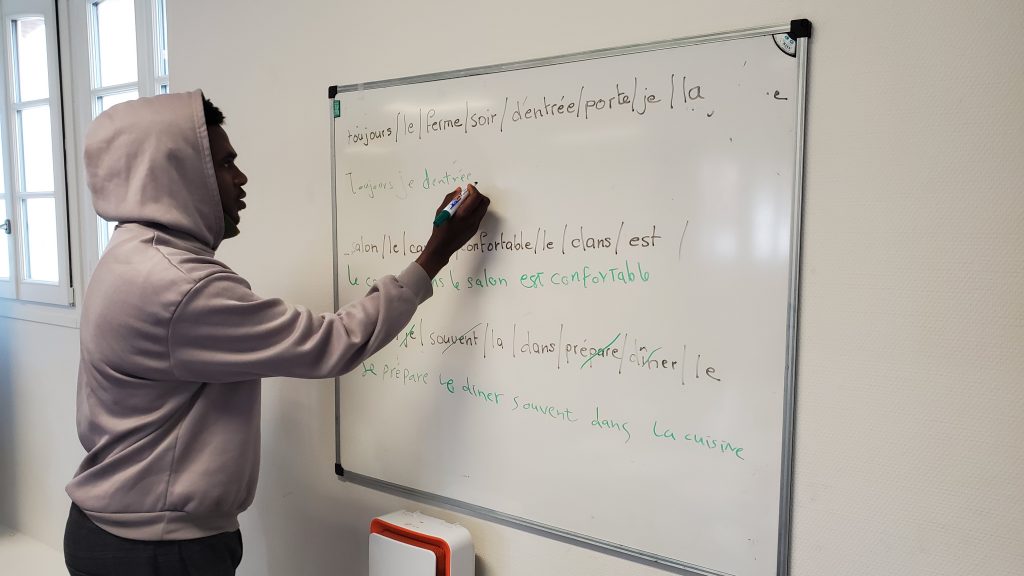 toujours/le/ferme/soir/d'entrée/porte/je/la
Toujours je dentrée
salon/le/ confortable/le/dans/est/
le le salon est confortable
je/souvent/la/dans/prépare/dîner/le
Je prépare le diner souvent dans la cuisine